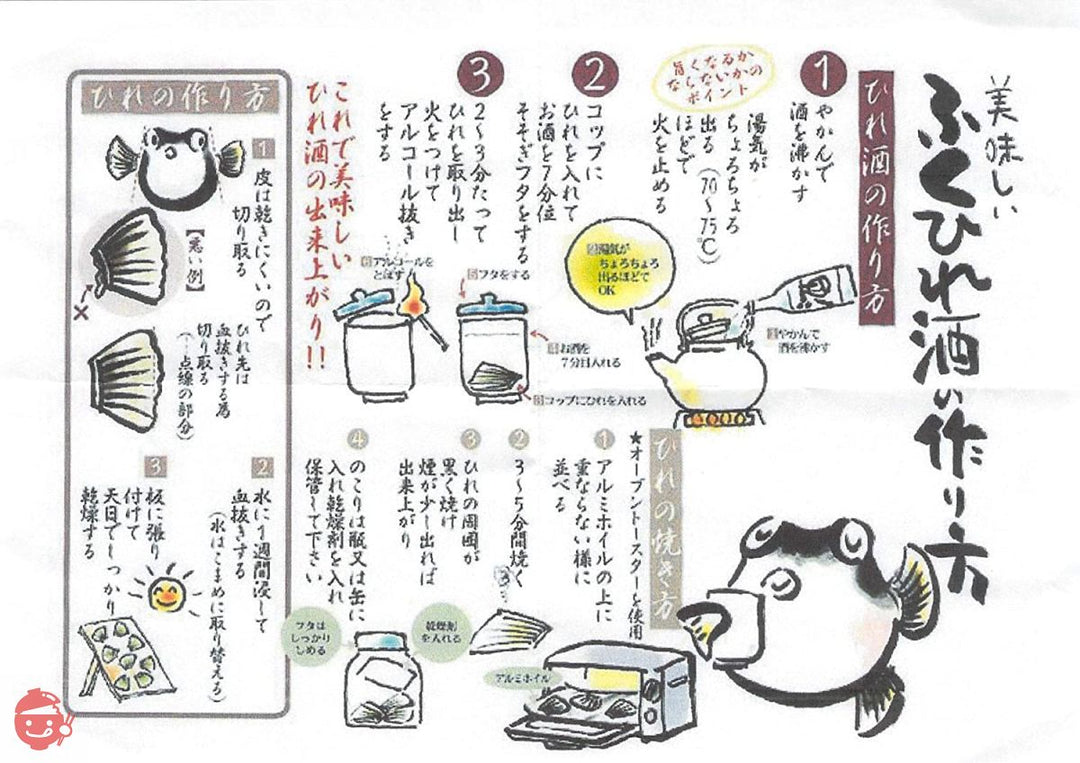 美味しい
ふくひれ酒の作り方
ひれ酒の作り方
1
やかんで
酒を沸かす
旨くなるか
ならないかの
ポイント
湯気が
ちょろちょろ
出る(70〜75℃)
ほどで
火を止める
2
コップに
ひれを入れて
お酒を7分位
そそぎフタをする
3
2〜3分たって
ひれを取り出し
火をつけて
アルコール抜き
をする
これで美味しい
ひれ酒の出来上がり!!
やかんで
酒を沸かす
湯気が
ちょろちょろ
出るほどで
OK
コップにひれを入れる
お酒を
7分目入れる
フタをする
アルコールを
とばす
ひれの焼き方
★オーブントースターを使用
1
アルミホイルの上に
重ならない様に
並べる
2
3〜5分間焼く
3
ひれの周囲が
黒く焼け
煙が少し出れば
出来上がり
4
のこりは瓶又は缶に
入れ乾燥剤を入れ
保管して下さい
アルミホイル
乾燥剤
を入れる
フタは
しっかり
しめる
ひれの作り方
1
皮は乾きにくいので
切り取る
【悪い例】
×
ひれ先は
血抜きする為
切り取る
(…点線の部分)
2
水に1週間浸して
血抜きする
(水はこまめに取り替える)
3
板に張り
付けて
天日でしっかり
乾燥する